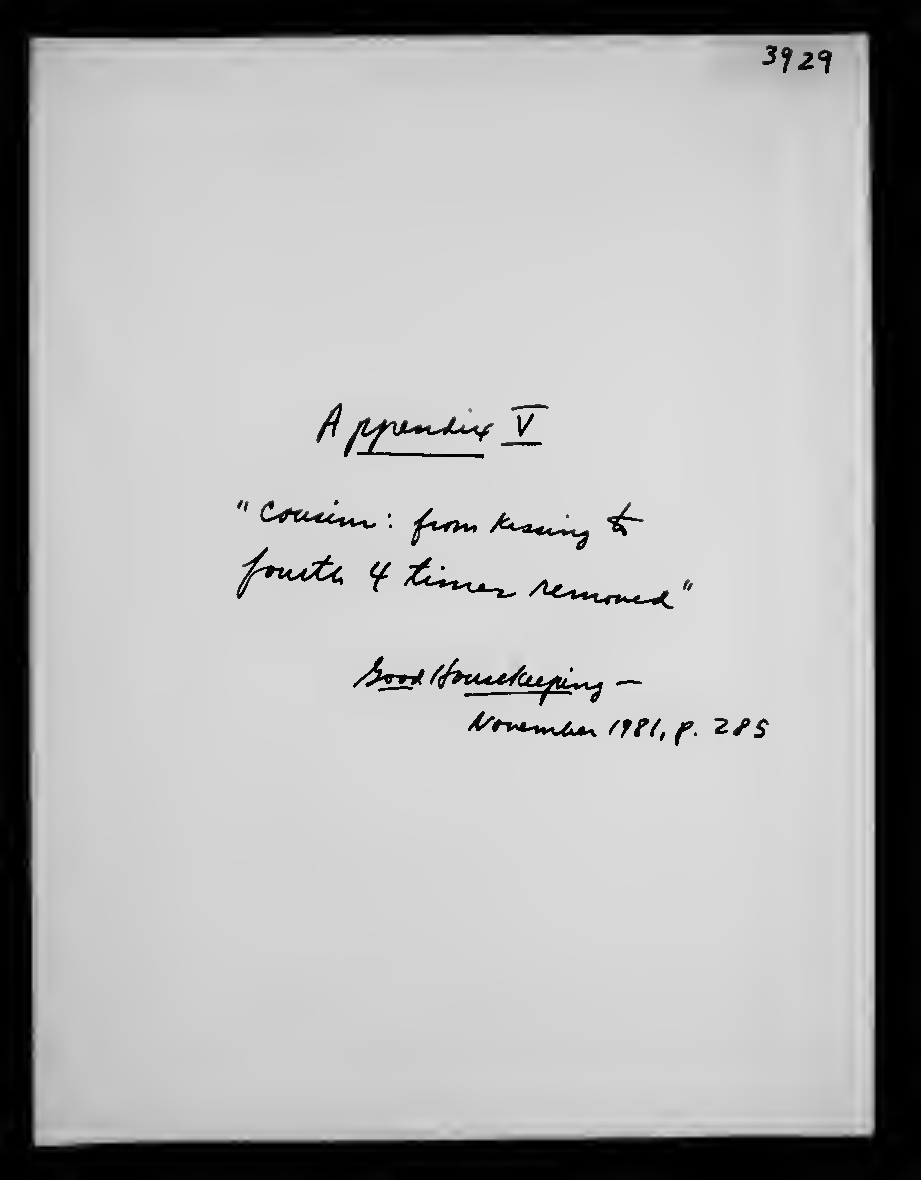 3929
Appendix V
"Cousins: from kissing to
fourth 4 times removed"
Good Housekeeping —
November 1981, p. 285